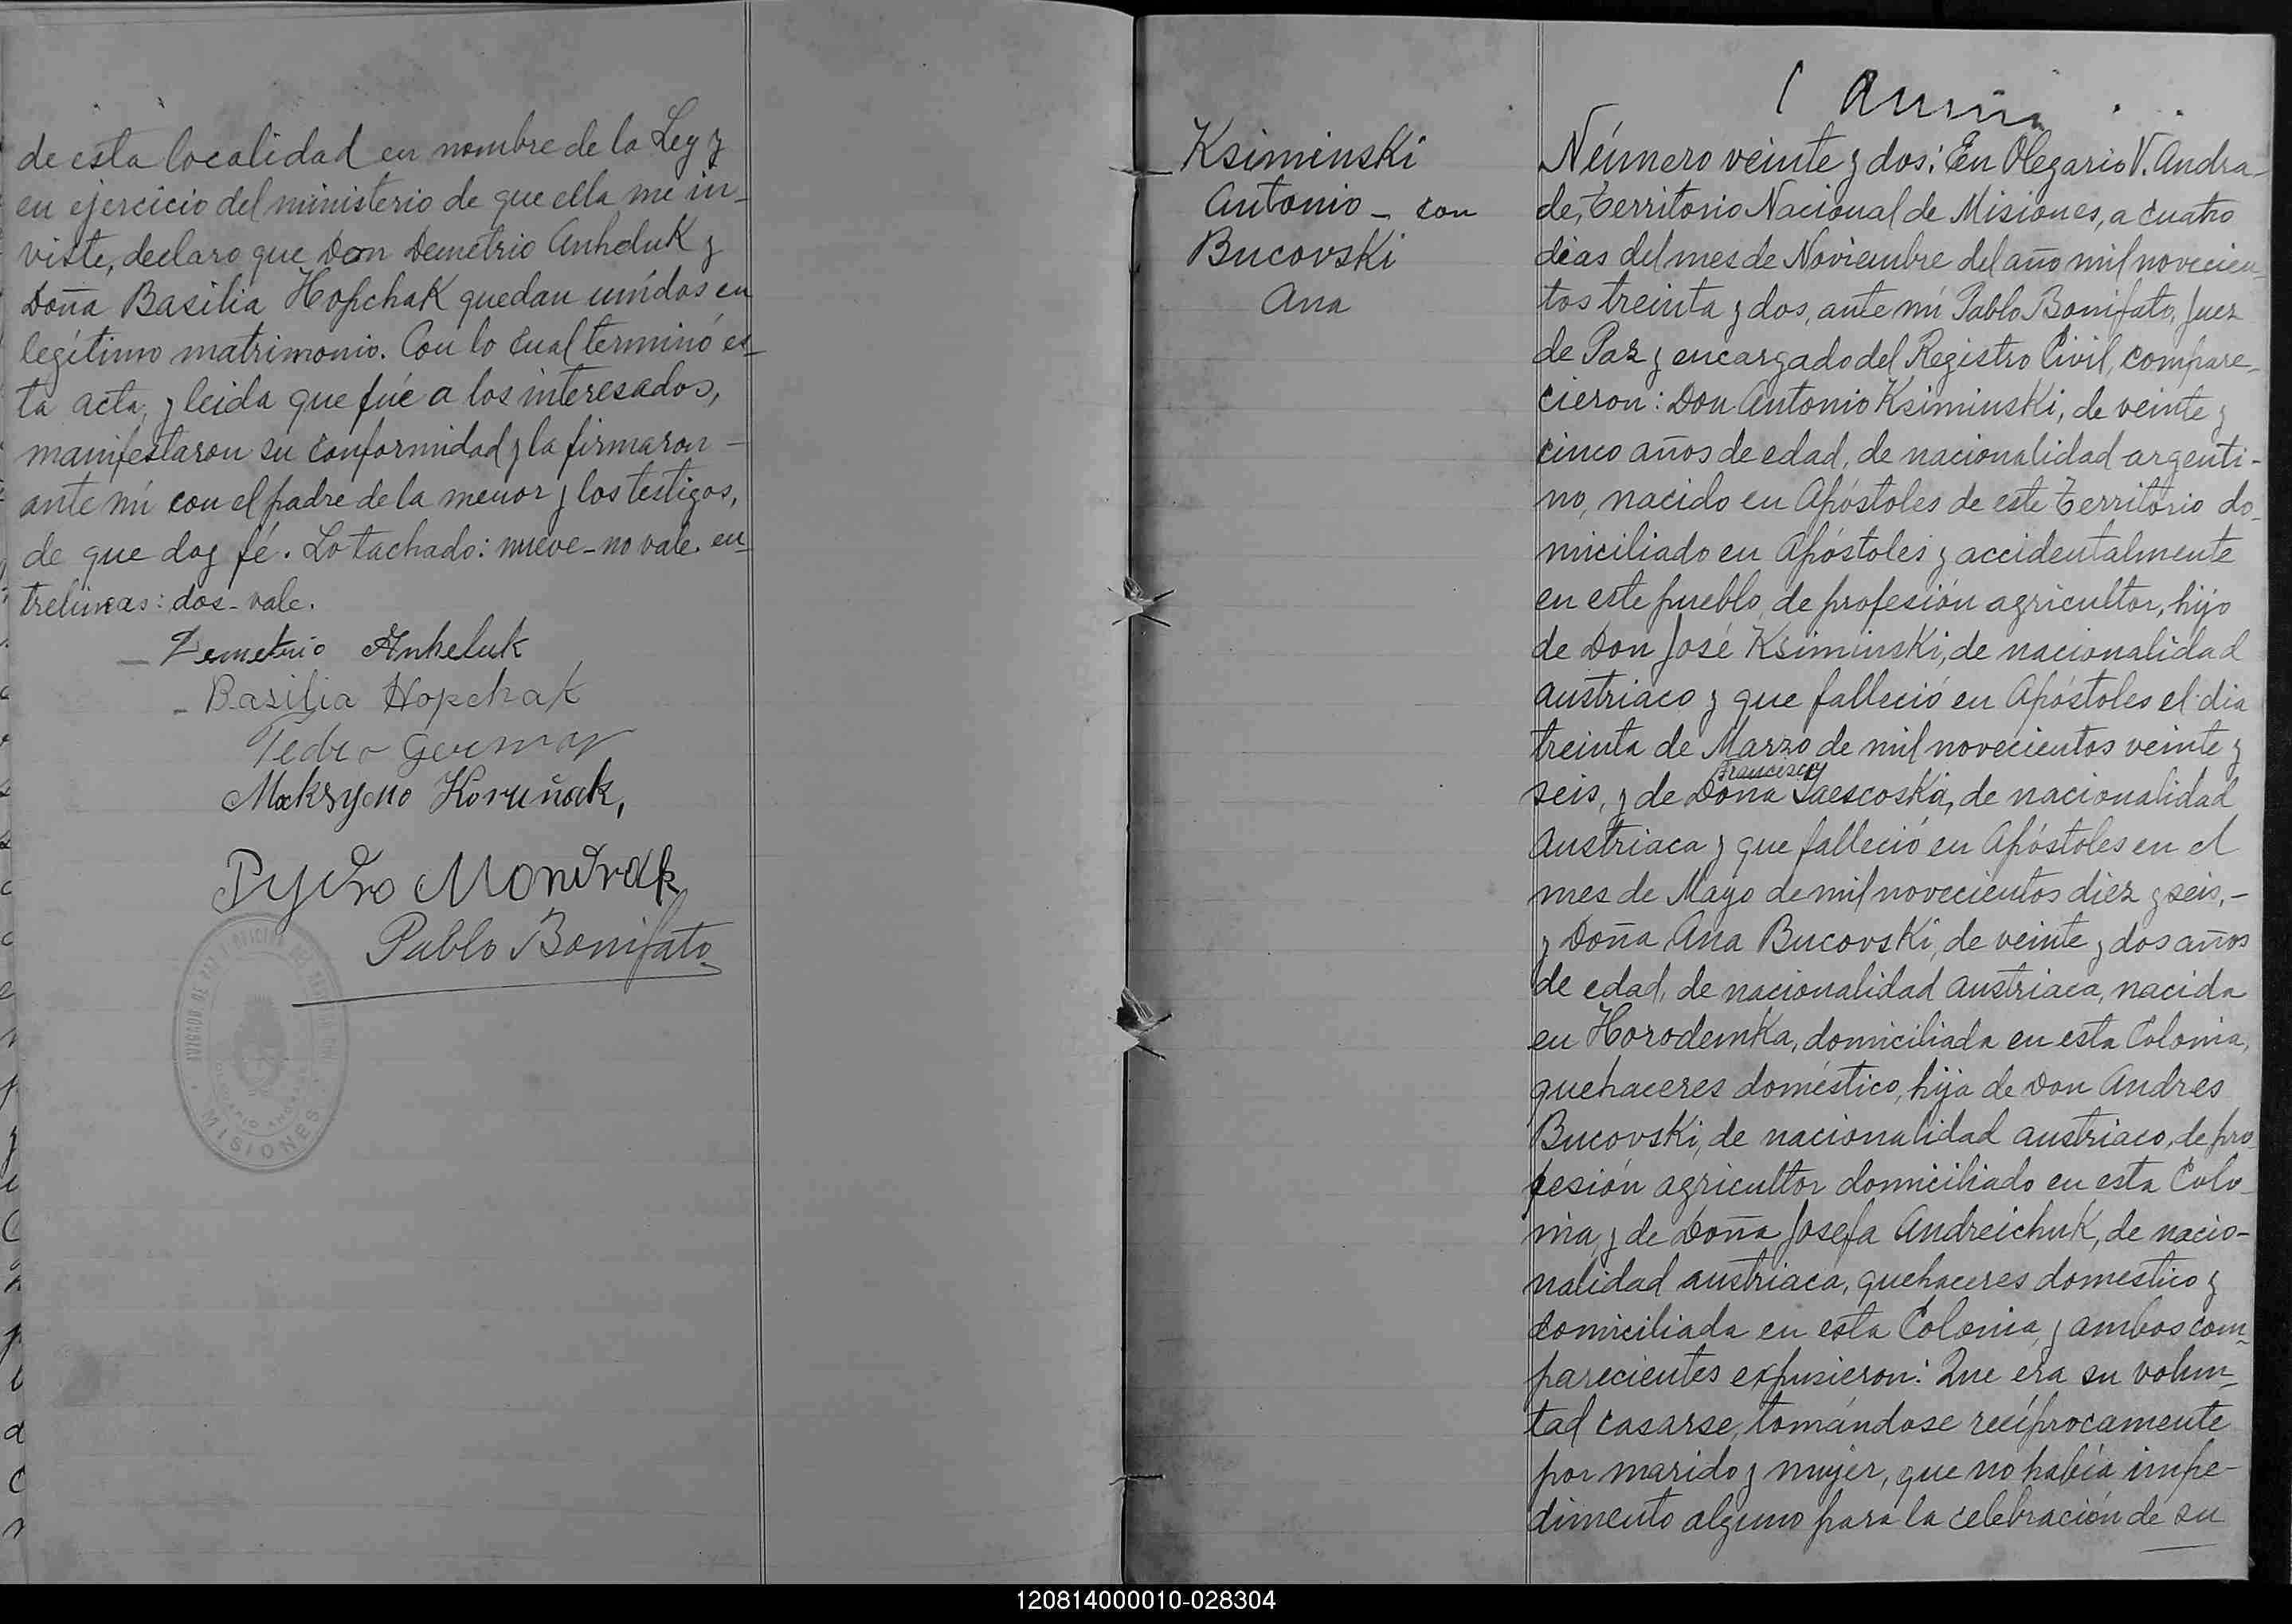 de esta localidad en nombre de la Ley y
en ejercicio del ministerio de que ella me in-
viste, declaro que Don Demetrio Anheluk y
Doña Basilia Hopchak quedan unidos en
legítimo matrimonio. Con lo cual terminó es-
ta acta, y leida que fué a los interesados,
manifestaron su conformidad y la firmaron -
ante mí con el padre de la menor y los testigos,
de que doy fé. Lo tachado: nueve - no vale. en-
trelineas: dos - vale.
Demetrio Anheluk
Basilia Hopchak
Pedro
Maksymo Koruñak,
Pydro Mondrak
Pablo Bonifato
MISIONES
Ksiminski
Antonio - con
Bucovski
Ana
Número veinte y dos: En Olegario V. Andra-
de, Territorio Nacional de Misiones, a cuatro
dias del mes de Noviembre del año mil novecien-
tos treinta y dos, ante mí Pablo Bonifato, Juez
de Paz y encargado del Registro Civil, compare-
cieron: Don Antonio Ksiminski, de veinte y
cinco años de edad, de nacionalidad argenti-
no, nacido en Apóstoles de este Territorio do-
miciliado en Apóstoles y accidentalmente
en este pueblo, de profesión agricultor, hijo
de Don José Ksiminski, de nacionalidad
austriaco y que falleció en Apóstoles el dia
treinta de Marzo de mil novecientos veinte y
Francisca
seis, y de Doña Saescoska, de nacionalidad
austriaca y que falleció en Apóstoles en el
mes de Mayo de mil novecientos diez y seis, -
y Doña Ana Bucovski, de veinte y dos años
de edad, de nacionalidad austriaca, nacida
en Horodemka, domiciliada en esta Colonia,
quehaceres doméstico, hija de Don Andres
Bucovski, de nacionalidad austriaco, de pro-
fesión agricultor domiciliado en esta Colo-
nia, y de Doña Josefa Andreichuk, de nacio-
nalidad austriaca, quehaceres domestico y
domiciliada en esta Colonia, y ambos com-
parecientes expusieron: Que era su volun-
tad casarse, tomándose recíprocamente
por marido y mujer, que no había impe-
dimento alguno para la celebración de su
120814000010-028304